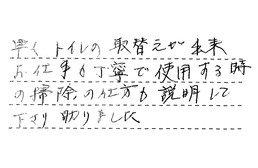 早くトイレの取替えが出来
お仕事も丁寧で使用する時
の掃除の仕方も説明して
下さり助りました